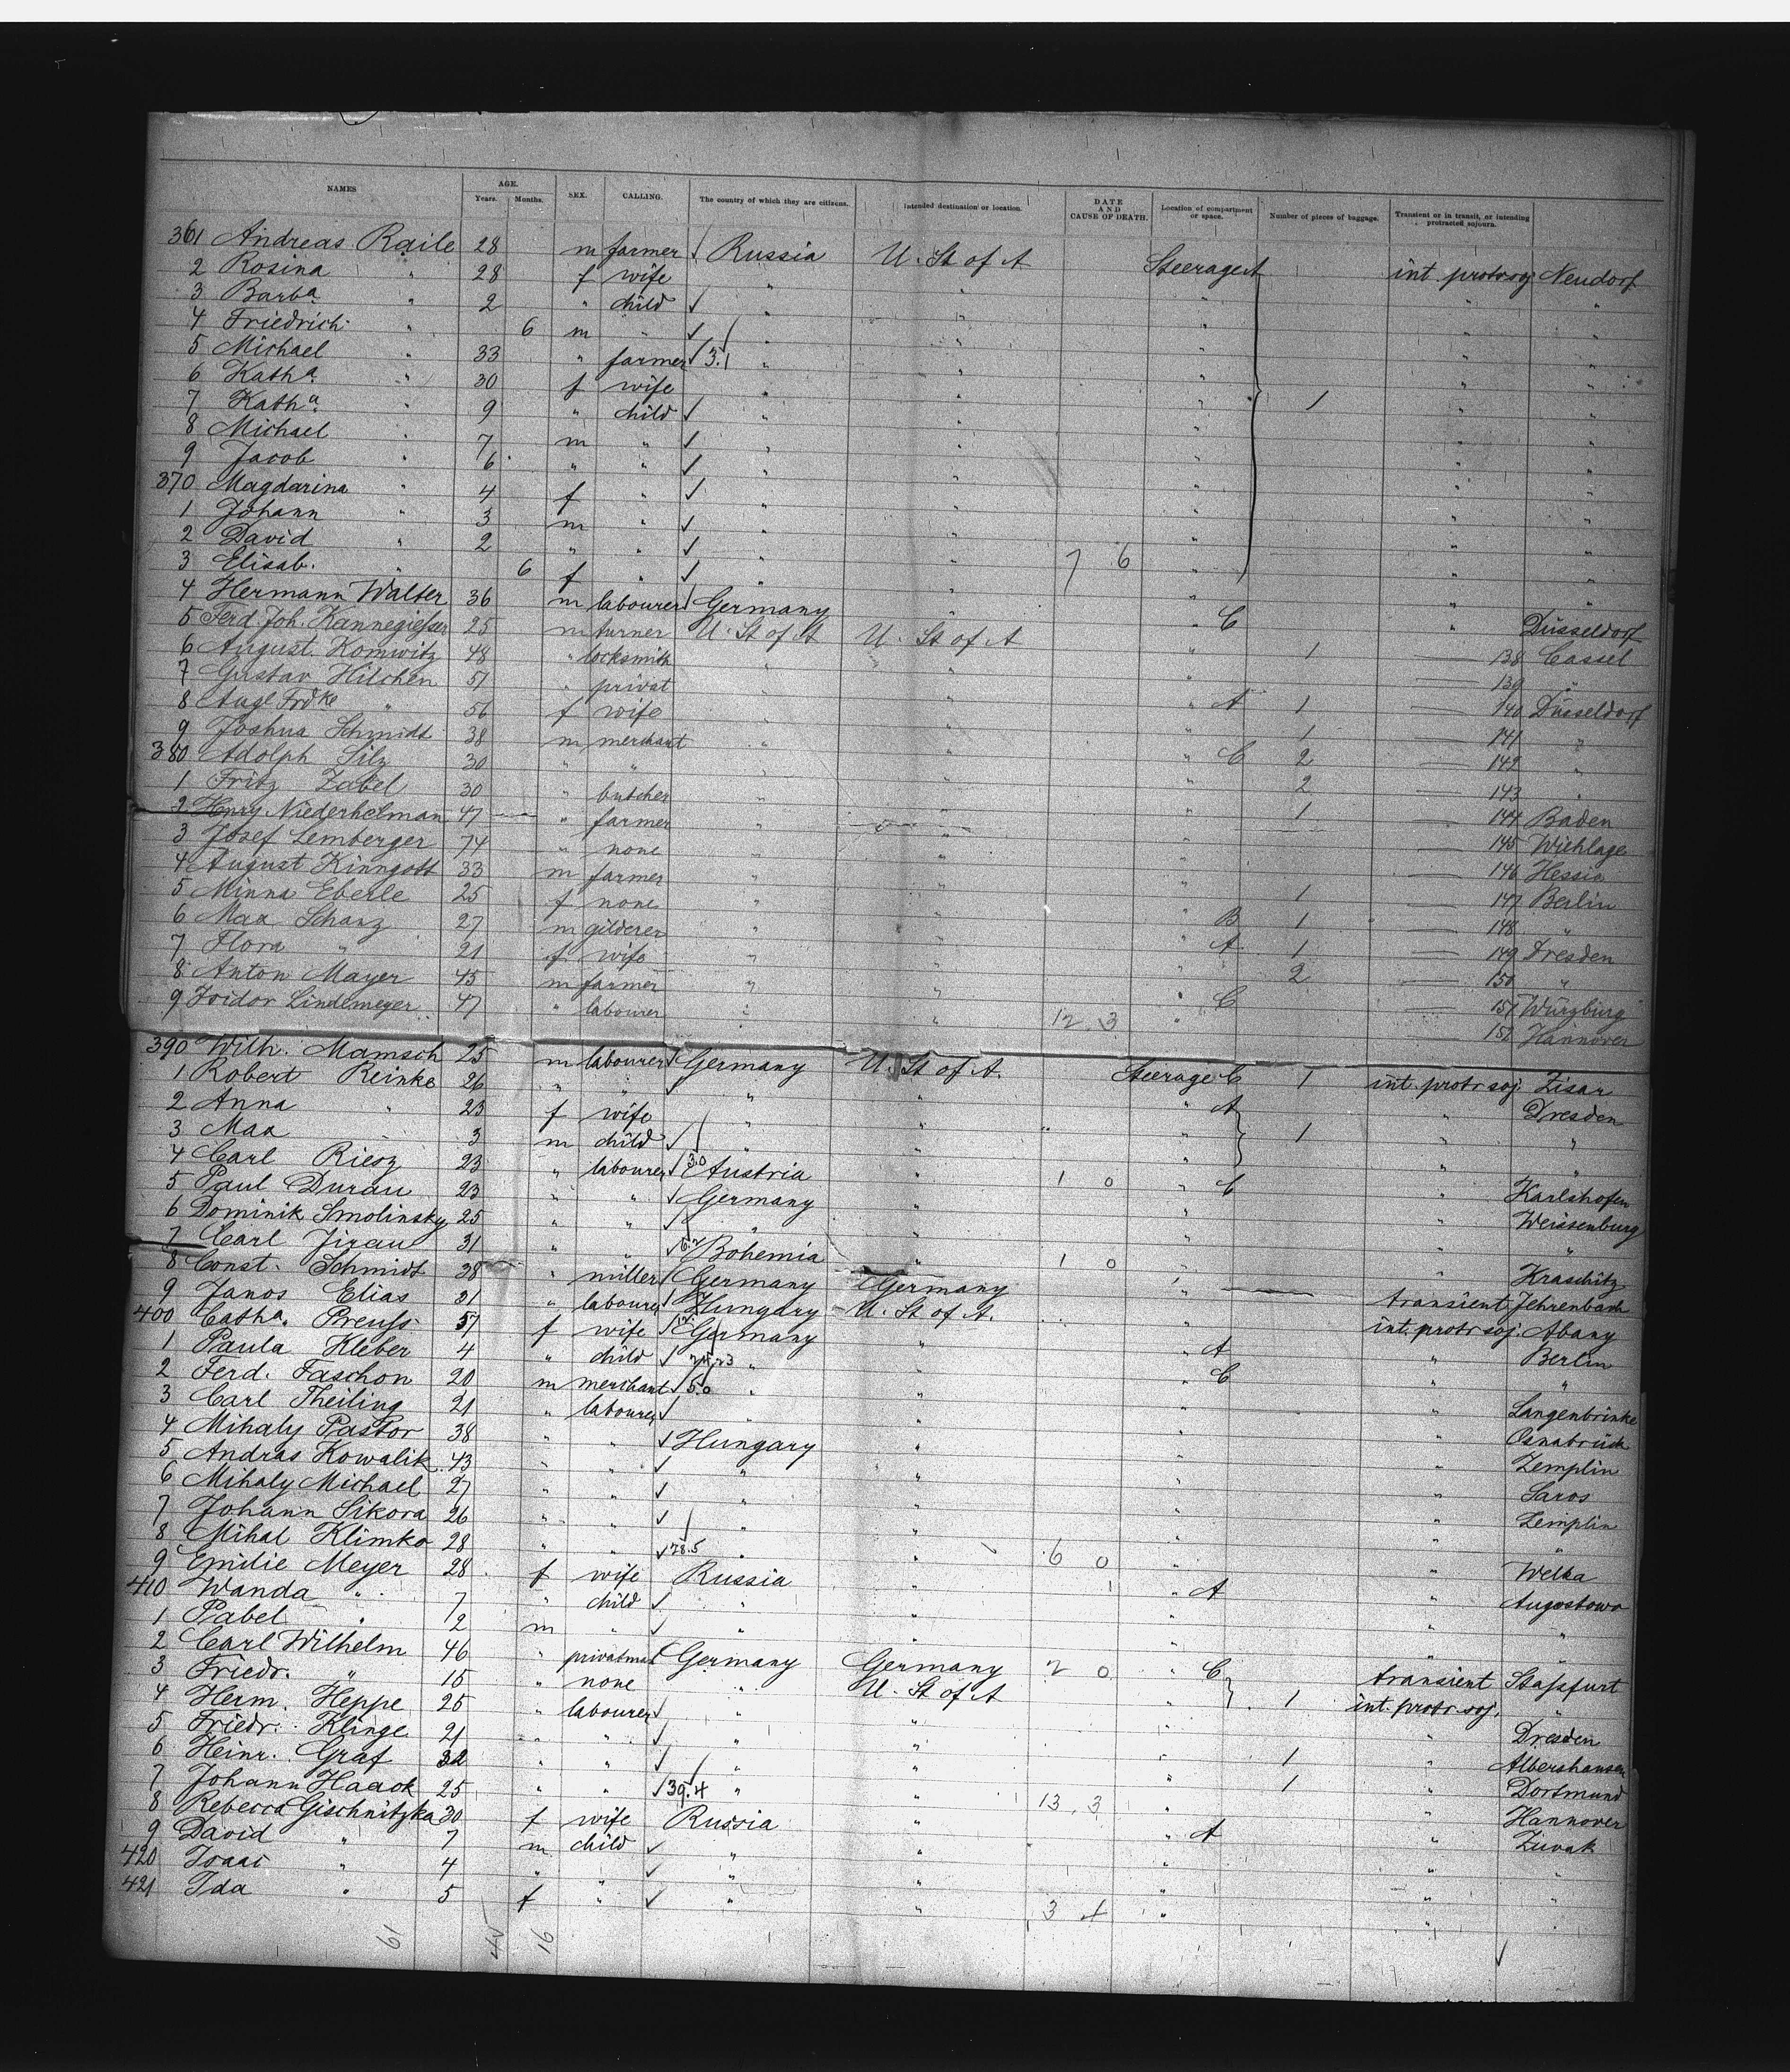 NAMES AGE. Years. Months. SEX. CALLING. The country of which they are citizens. Intended destination or location. DATE AND CAUSE OF DEATH. Location of compartment or space. Number of pieces of baggage. Transient or in transit, or intending protracted sojourn.
361 Andreas Raile 28 m farmer Russia U. St of A Steerage A int protr soj Neudorf
2 Rosina " 28 f wife " " " " "
3 Barba " 2 " child " " " " "
4 Friedrich " 6 m " " " " " "
5 Michael " 33 " farmer 3.1 " " " " "
6 Katha " 30 f wife " " " 1 " "
7 Katha " 9 " child " " " " "
8 Michael " 7 m " " " " " "
9 Jacob " 6 " " " " " " "
370 Magdarina " 4 f " " " " " "
1 Johann " 3 m " " " " " "
2 David " 2 " " " " " " "
3 Elisab. " 6 f " " " 7 6 " " "
4 Hermann Walter 36 m labourer Germany " " C " Düsseldorf
5 Ferd. Joh. Kannegiesser 25 m turner U. St of A U. St of A " 1 138 Cassel
6 August Komwitz 48 " locksmith " " " 139 "
7 Gustav Hilchen 51 " privat " " " A 1 140 Düsseldorf
8 Aug. Frdke " 56 f wife " " " 1 141 "
9 Joshua Schmidt 38 m merchant " " " C 2 142 "
380 Adolph Silz 30 " " " " " 2 143 "
1 Fritz Zabel 30 " butcher " " " 1 144 Baden
2 Henry Niederhelman 47 " farmer " " 145 Wichlage
3 Josef Lemberger 74 " none " " " 146 Hessia
4 August Kinngott 33 m farmer " " " 1 147 Berlin
5 Minna Eberle 25 f none " " " B 1 148 "
6 Max Schanz 27 m gilderer " " " A 1 149 Dresden
7 Flora " 21 f wife " " " 2 150 "
8 Anton Mayer 45 m farmer " " " C 151 Würzburg
9 Isidor Lindemeyer 47 " labourer " " 12.3 " 152 Hannover
390 Wilh. Mamsch 25 m labourer Germany U. St of A. Steerage C 1 int protr soj. Zisar
1 Robert Reinke 26 " " " " " A " Dresden
2 Anna " 23 f wife " " " 1 " "
3 Max 3 m child " " " " "
4 Carl Riesz 23 " labourer 3.0 Austria " 1 0 " C " Karlshofen
5 Paul Durau 23 " " Germany " " " Weissenburg
6 Dominik Smolinsky 25 " " " " " " "
7 Carl Jirau 31 " " Bohemia " 1 0 " " Kraschitz
8 Const. Schmidt 38 " miller Germany Germany " transient Jehrenbach
9 Janos Elias 31 " labourer Hungary U. St of A. " int. protr soj. Abany
400 Catha. Preuss 57 f wife Germany " " A " Berlin
1 Paula Kleber 4 " child " " " C " "
2 Ferd. Faschon 20 m merchant 5.0 " " " " Langenbrinke
3 Carl Theiling 21 " labourer " " " " Osnabrück
4 Mihaly Pastor 38 " " Hungary " " " Zemplin
5 Andras Kowalik 43 " " " " " " Saros
6 Mihaly Michael 27 " " " " " " Zemplin
7 Johann Sikora 26 " " " " " " "
8 Mihal Klimko 28 " " 78.5 " " 6 0 " " Welka
9 Emilie Meyer 28 f wife Russia " " A " Augostowo
410 Wanda " 7 " child " " " " "
1 Pabel " 2 m " " " " " "
2 Carl Wilhelm 46 " privatman Germany Germany 2 0 " C transient Stassfurt
3 Friedr. " 15 " none " U. St of A " 1 int. protr. soj. "
4 Herm. Heppe 25 " labourer " " " " Dresden
5 Friedr. Klinge 21 " " " " " 1 " Albershausen
6 Heinr. Graf 32 " " " " " 1 " Dortmund
7 Johann Haack 25 " " 39.4 " " 13.3 " " Hannover
8 Rebecca Gischnitzka 30 f wife Russia " " A " Zuvak
9 David " 7 m child " " " " "
420 Isaac " 4 " " " " " " "
421 Ida " 5 f " " " 3 4 " "
61 42 16